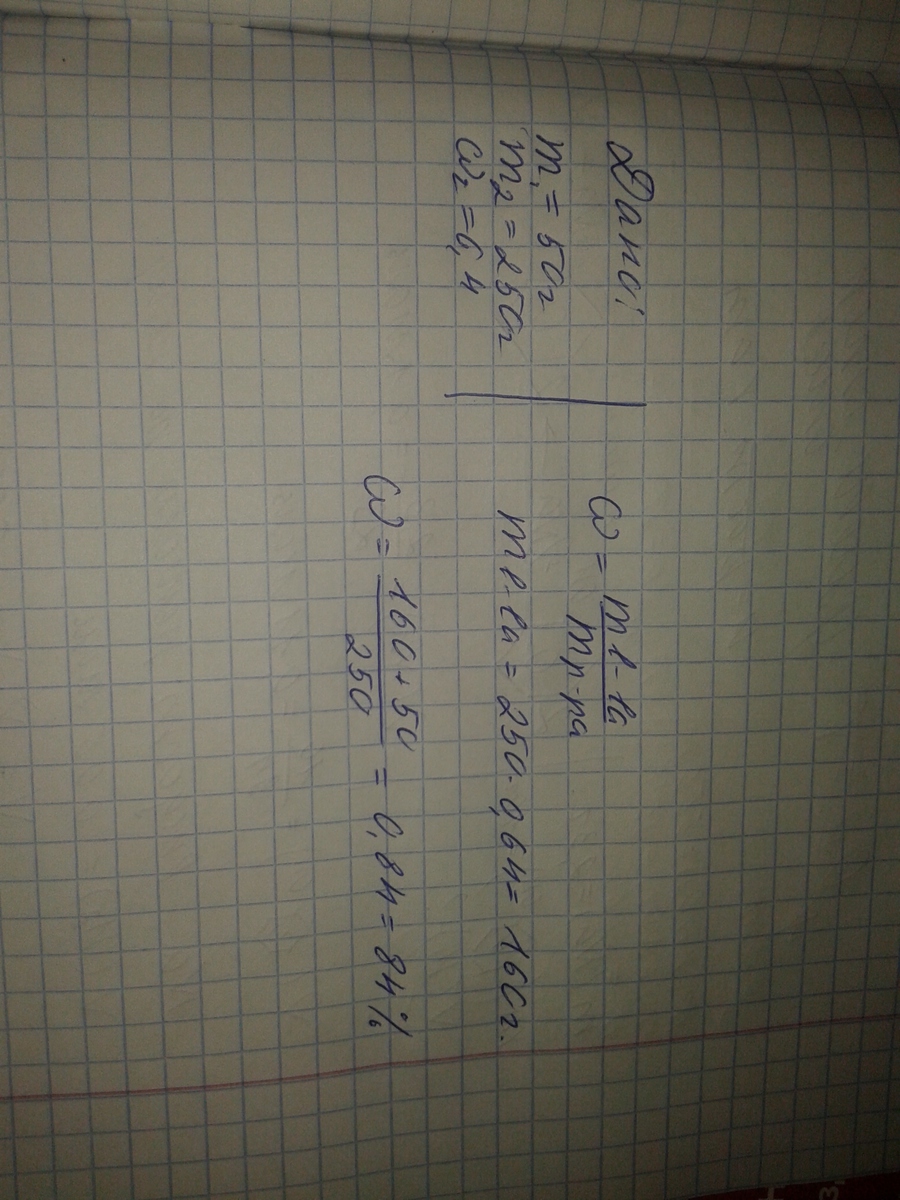 Дано:
m₁ = 50г
m₂ = 250г
ω₂ = 0,4
ω = m в-ва / m р-ра
m в-ва = 250 · 0,64 = 160г.
ω = 160 + 50 / 250 = 0,84 = 84%